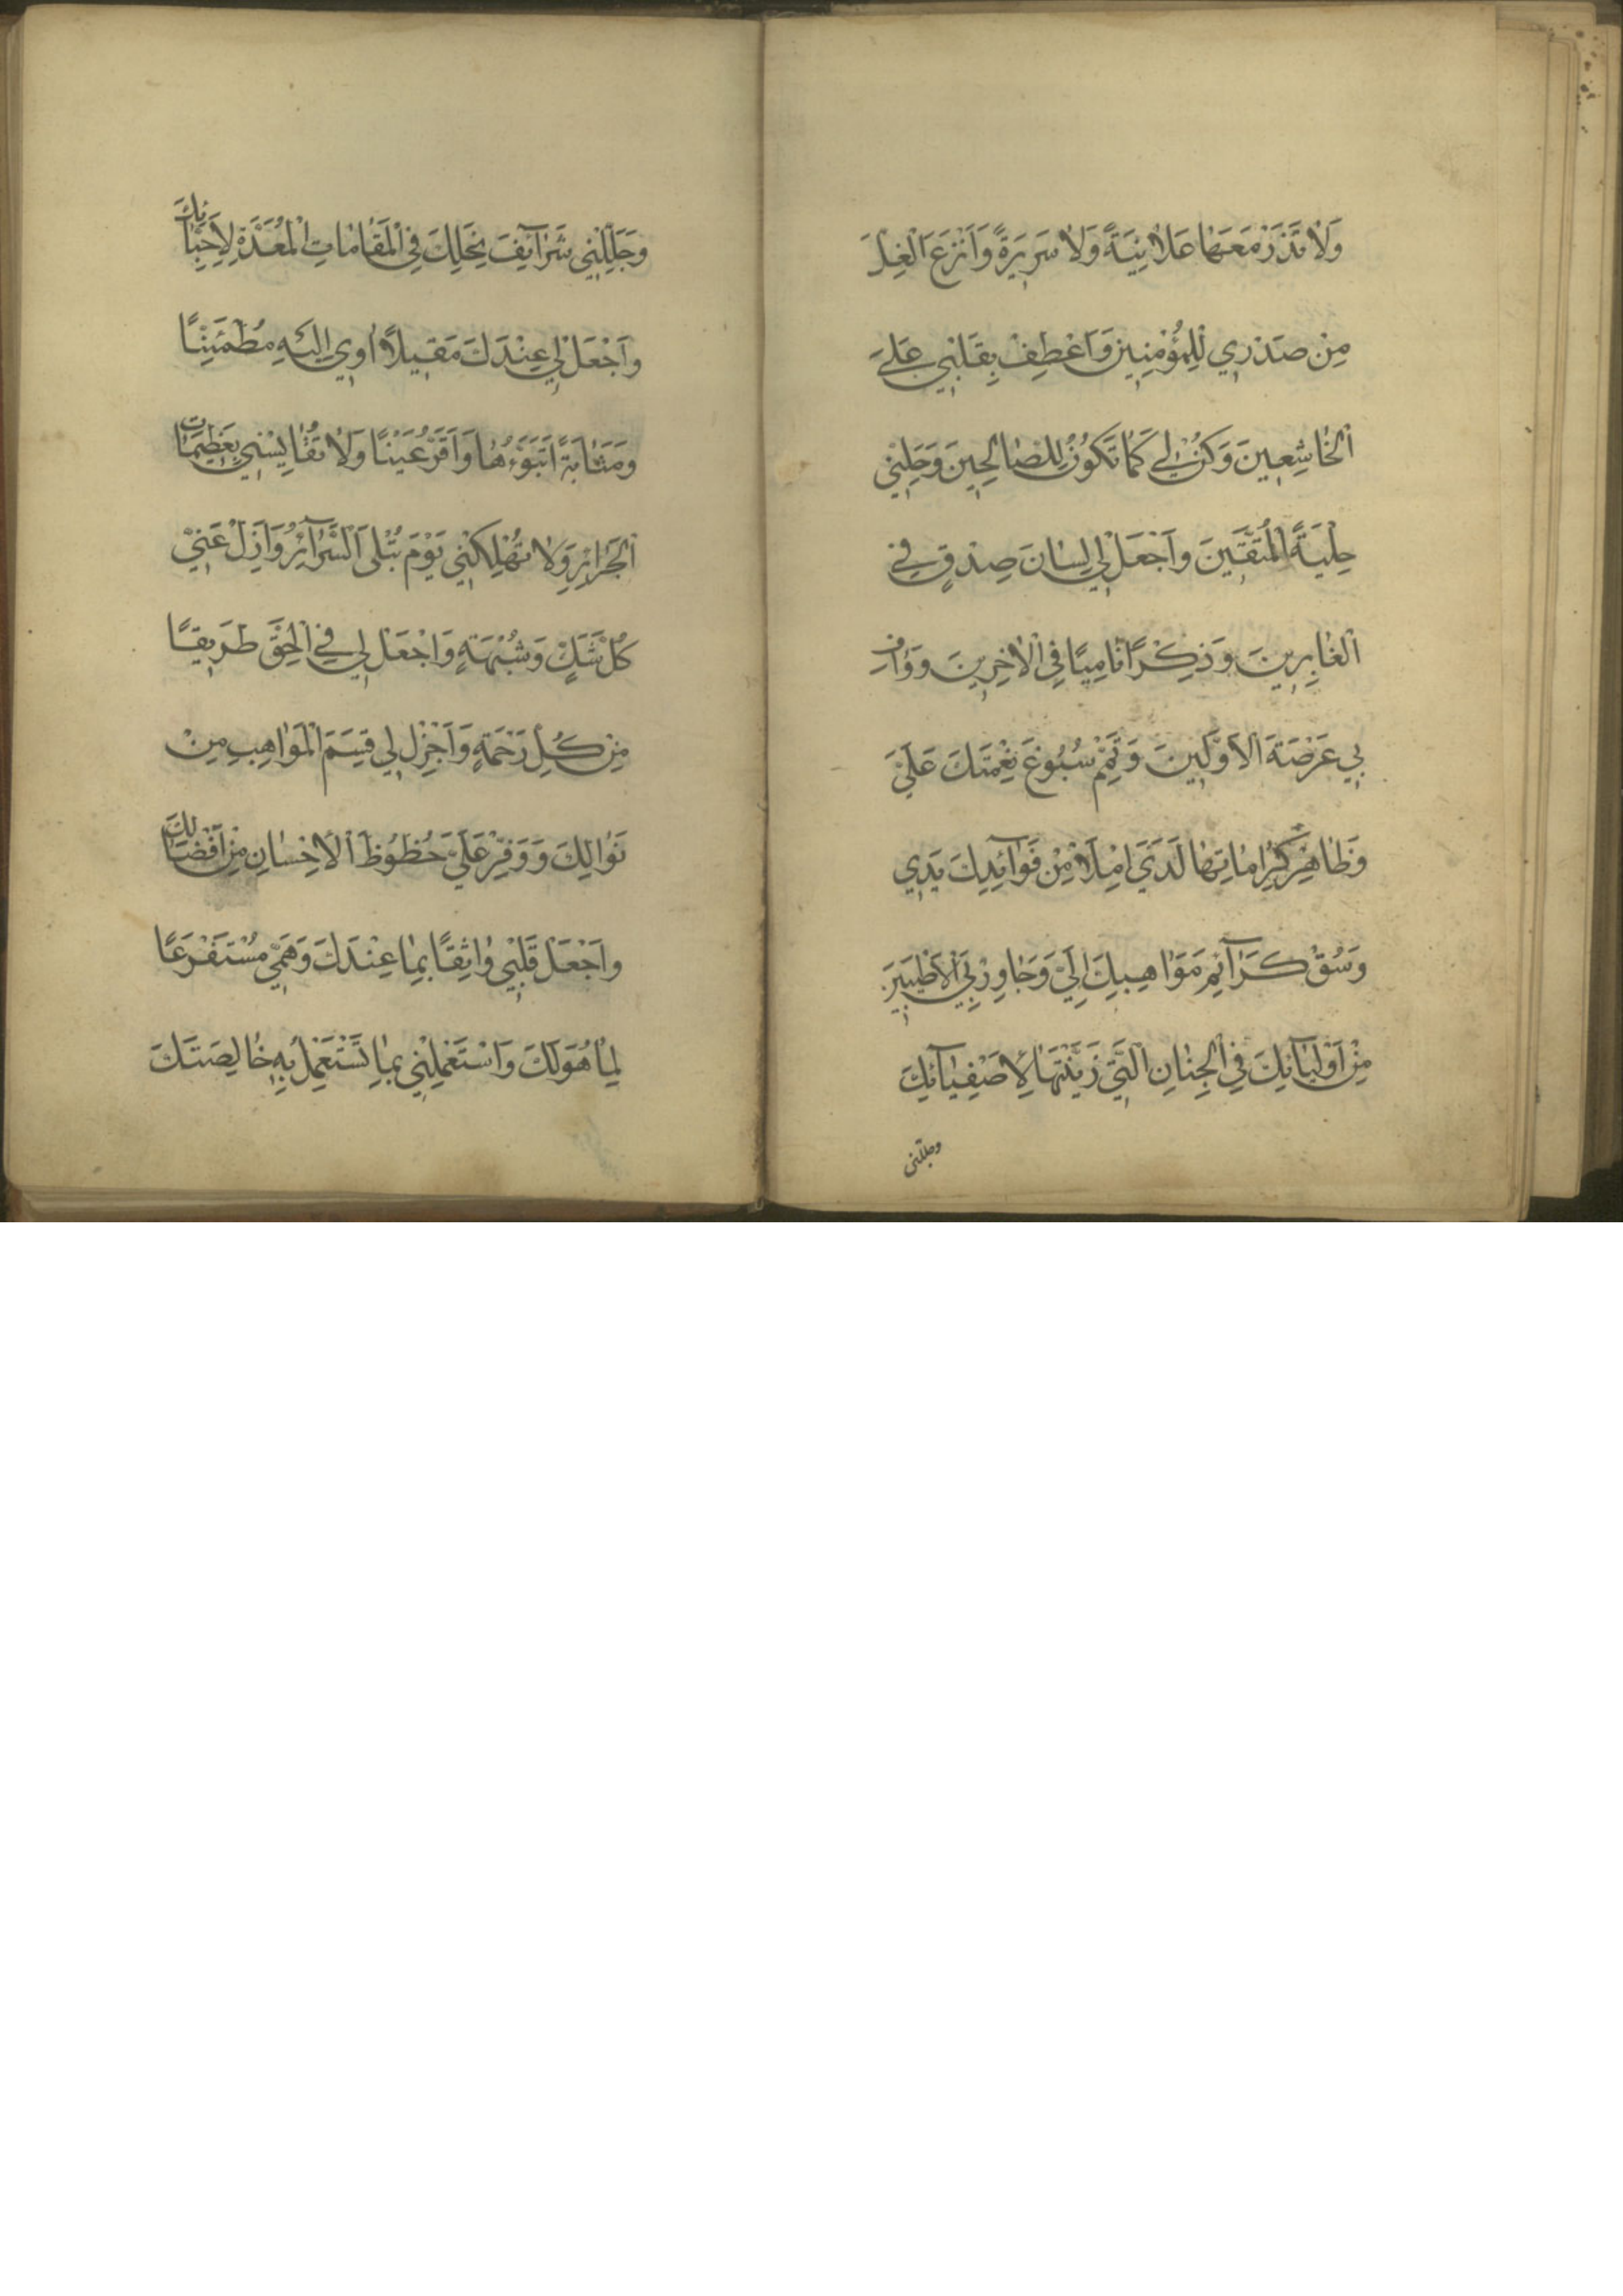 وَلَا تَذَرْ مَعَهَا عَلَانِيَةً وَلَا سَرِيرَةً وَانْزَعِ الْغِلَّ
مِنْ صَدْرِي لِلْمُؤْمِنِينَ وَاعْطِفْ بِقَلْبِي عَلَى
الْخَاشِعِينَ وَكُنْ لِي كَمَا تَكُونُ لِلصَّالِحِينَ وَحَلِّنِي
حِلْيَةَ الْمُتَّقِينَ وَاجْعَلْ لِي لِسَانَ صِدْقٍ فِي
الْغَابِرِينَ وَذِكْرًا نَامِيًا فِي الْآخِرِينَ وَوَافِ
بِي عَرْصَةَ الْأَوَّلِينَ وَتَمِّمْ سُبُوغَ نِعْمَتِكَ عَلَيَّ
وَظَاهِرْ كَرَامَاتِهَا لَدَيَّ امْلَأْ مِنْ فَوَائِدِكَ يَدِي
وَسُقْ كَرَائِمَ مَوَاهِبِكَ إِلَيَّ وَجَاوِرْ بِيَ الْأَطْيَبِينَ
مِنْ أَوْلِيَائِكَ فِي الْجِنَانِ الَّتِي زَيَّنْتَهَا لِأَصْفِيَائِكَ
وجللنى
وَجَلِّلْنِي شَرَائِفَ نِحَلِكَ فِي الْمَقَامَاتِ الْمُعَدَّةِ لِأَحِبَّائِكَ
وَاجْعَلْ لِي عِنْدَكَ مَقِيلًا آوِي إِلَيْهِ مُطْمَئِنًّا
وَمَثَابَةً أَتَبَوَّءُهَا وَأَقَرُّ عَيْنًا وَلَا تُقَايِسْنِي بِعَظِيمَاتِ
الْجَرَائِرِ وَلَا تُهْلِكْنِي يَوْمَ تُبْلَى السَّرَائِرُ وَأَزِلْ عَنِّي
كُلَّ شَكٍّ وَشُبْهَةٍ وَاجْعَلْ لِي فِي الْحَقِّ طَرِيقًا
مِنْ كُلِّ رَحْمَةٍ وَأَجْزِلْ لِي قِسَمَ الْمَوَاهِبِ مِنْ
نَوَالِكَ وَوَفِّرْ عَلَيَّ حُظُوظَ الْإِحْسَانِ مِنْ أَفْضَالِكَ
وَاجْعَلْ قَلْبِي وَاثِقًا بِمَا عِنْدَكَ وَهَمِّي مُسْتَفْرَغًا
لِمَا هُوَ لَكَ وَاسْتَعْمِلْنِي بِمَا تَسْتَعْمِلُ بِهِ خَالِصَتَكَ